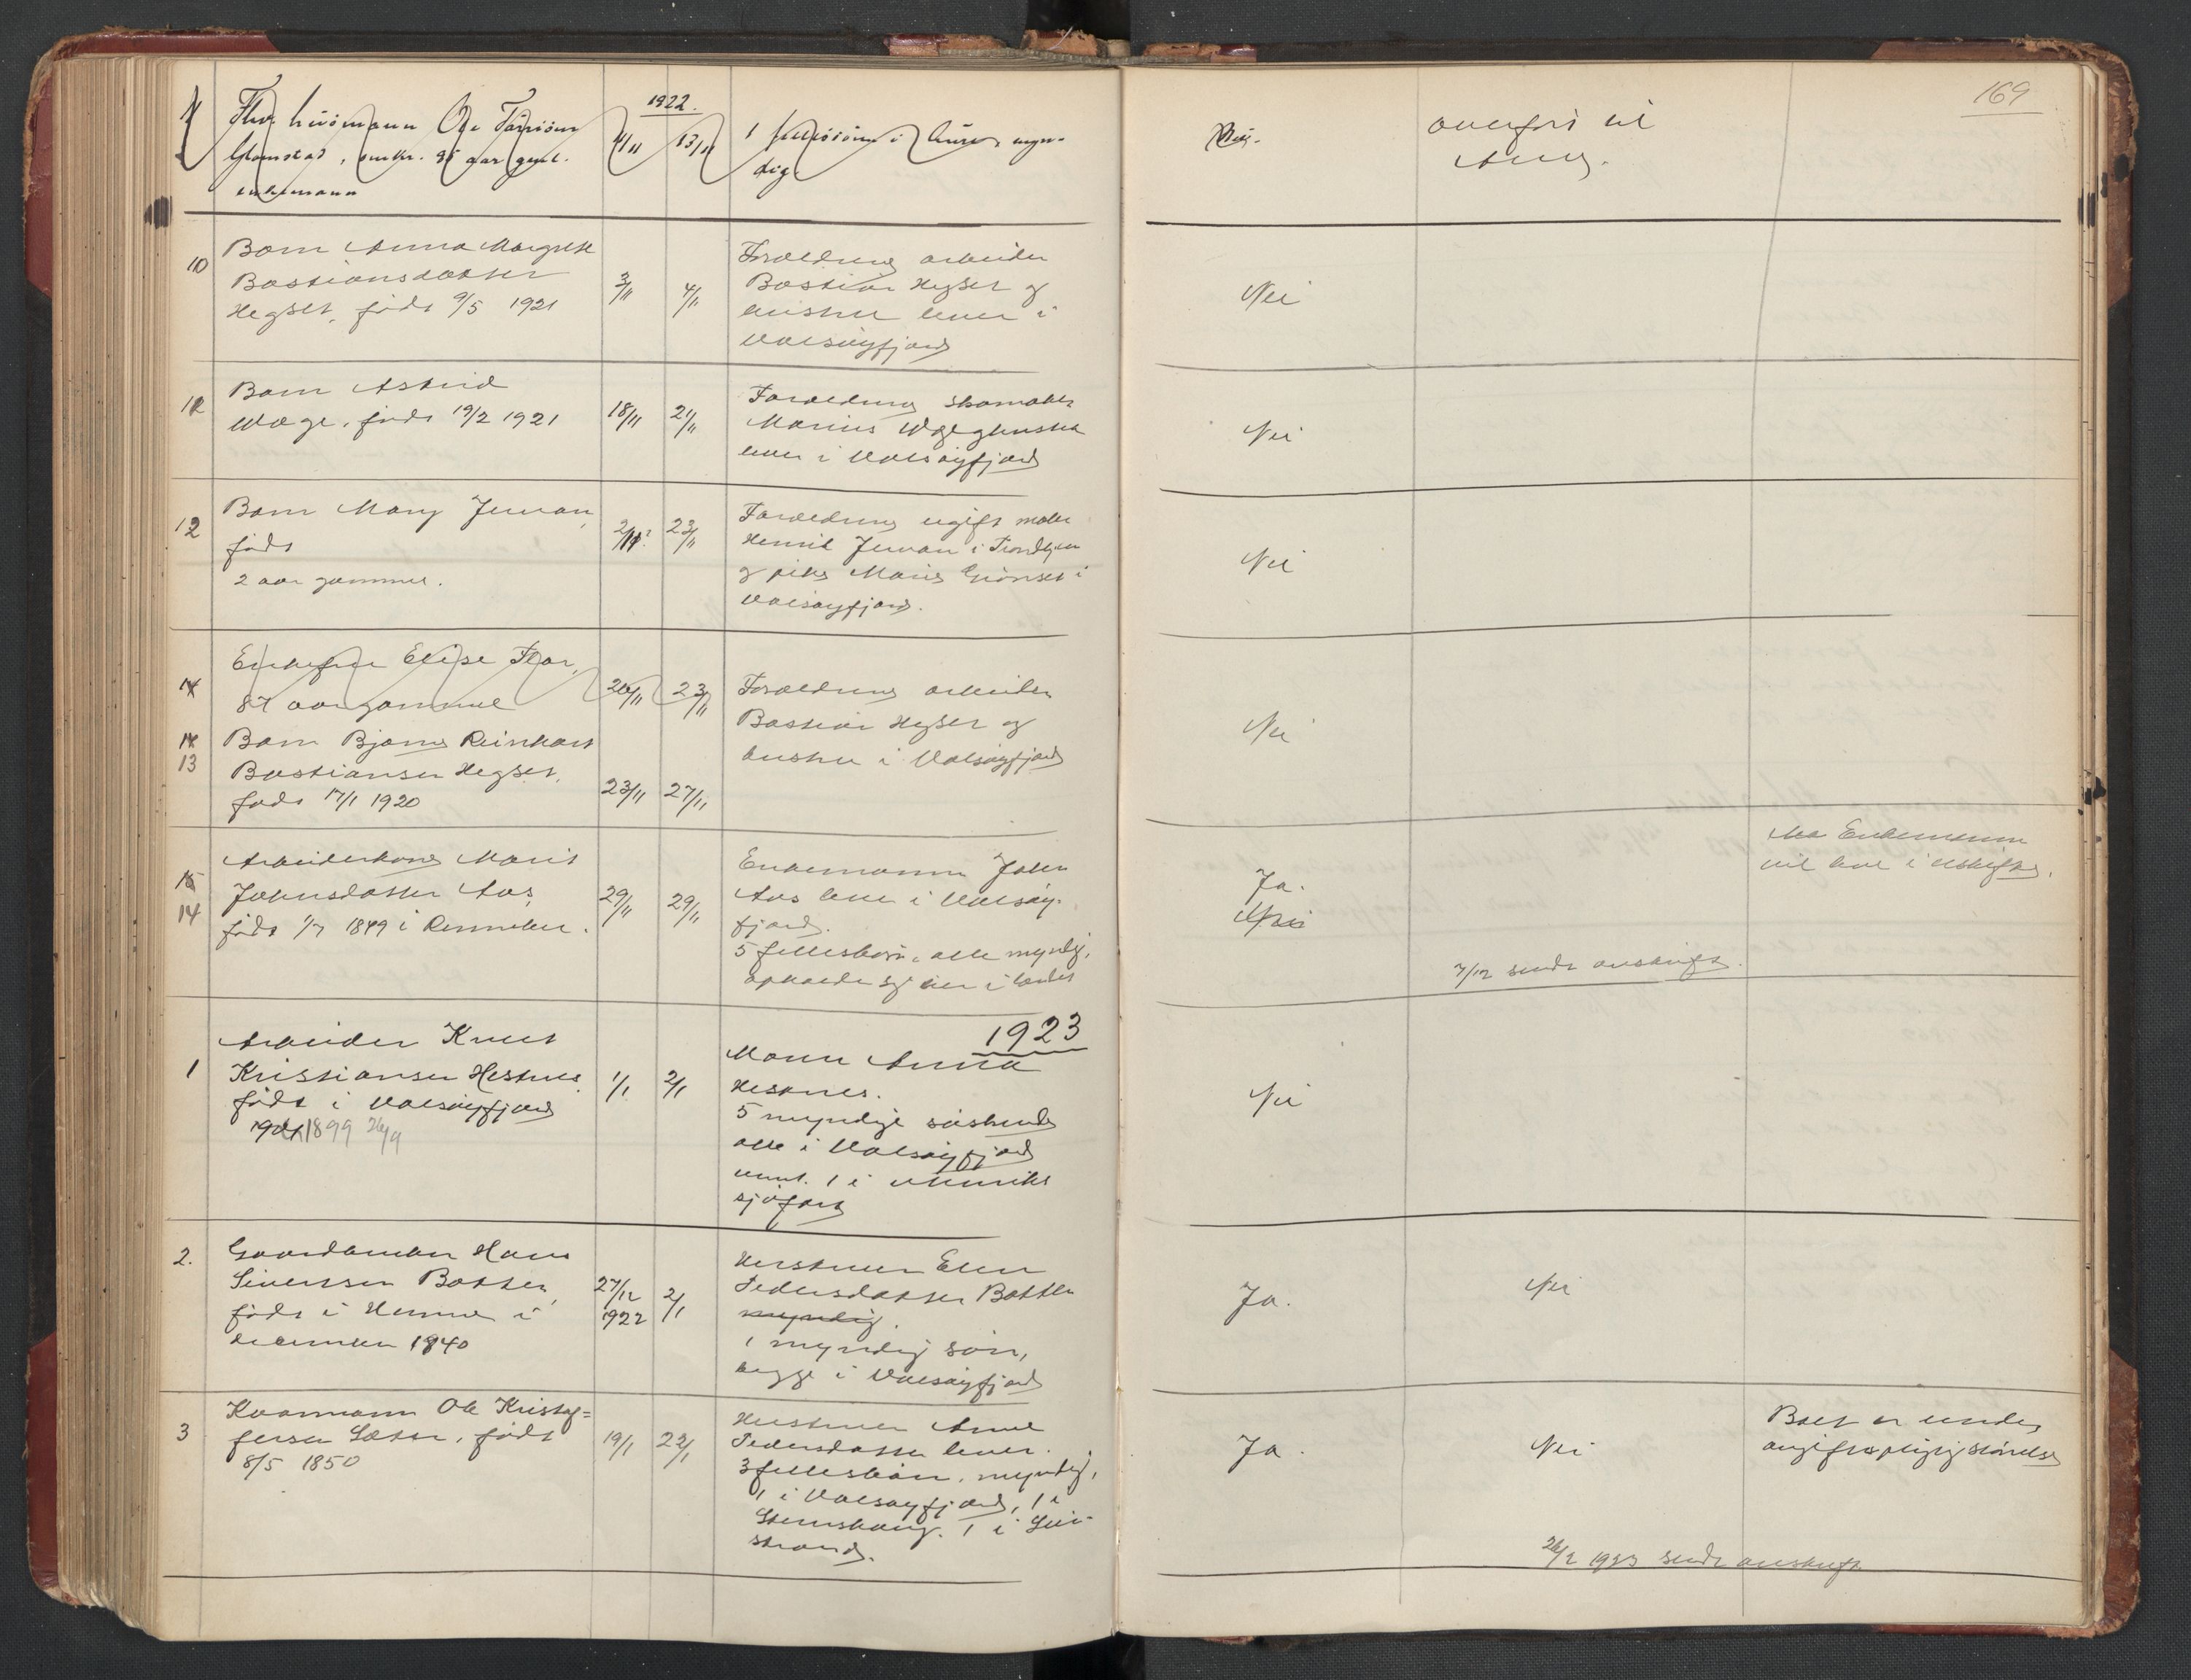 169
1922.
Glomstad, omkr. 95 aar gml.
enkemann
4/11
13/11
dig.
Nei.
overført til
Aure.
10
Barn Anna Margrete
Bastiansdatter
Hegset, født 9/5 1921
3/11
4/11
Forældrene arbeider
Bastian Hegset og
hustru lever i
Valsøyfjord
Nei
12
Barn Astrid
Wåge, født 19/2 1921
18/11
21/11
Forældrene skomaker
Marius Wåge og hustru
lever i Valsøyfjord
Nei
12
Barn Mary
født
2 aar gammel.
23/11
Forældrene ugift maler
Henrik i Trondhjem
og pike Marie Grønset i
Valsøyfjord.
Nei
14
Enkefru Elise
87 aar gammel
20/11
23/11
14
13
Barn Bjarne Reinhart
Bastiansen Hegset,
født 17/1 1920
23/11
27/11
Forældrene arbeider
Bastian Hegset og
hustru i Valsøyfjord
Nei
15
14
Arbeiderkone Marit
Johnsdatter Aas,
født 1/7 1849 i Rennebu.
29/11
29/11
Enkemann John
Aas lever i Valsøy-
fjord.
5 fellesbørn, alle myndig,
opholder sig her i landet
Ja.
Nei
7/12 sendt avskrift.
Enkemannen
vil leve i uskifte.
1923
1
Arbeider Knut
Kristiansen Hestnes
født i Valsøyfjord
1901 1899 26/9
1/1
2/1
Moren Anna
Hestnes.
5 myndige søskende
alle i Valsøyfjord
unnt. 1 i utenriks
sjøfart
Nei
2.
Gaardbruker Hans
Sivertsen Botten,
født i Hemne i
december 1840
27/12
1922
2/1
Hustruen Elen
Pedersdatter Botten
myndig.
1 myndig søn,
begge i Valsøyfjord
Ja.
Nei
3
Kaarmann Ole Kristof=
fersen Sæter, født
8/5 1850
19/1
22/1
Hustruen Anne
Pedersdatter lever.
3 fellesbørn, myndig,
1 i Valsøyfjord, 1 i
Stemshaug. 1 i Lei-
strand.
Ja.
Nei
Boet er under
avgiftspligtig størrelse
26/2 1923 sendt avskrift